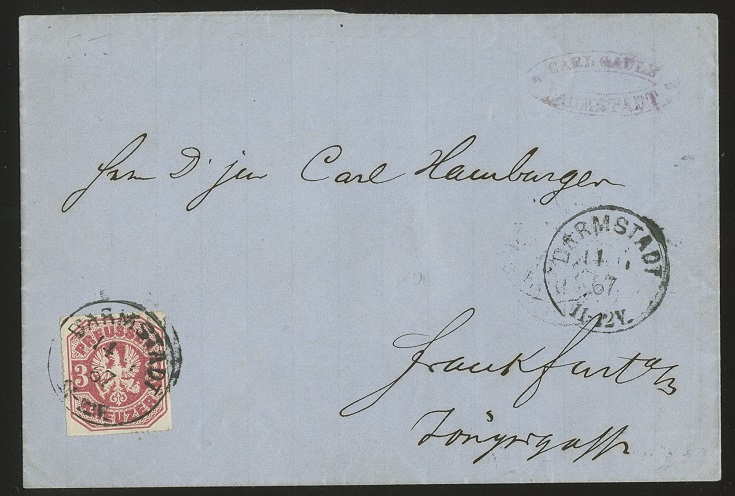 CARL GAULE
DARMSTADT
Herrn D. jur Carl Hamburger
DARMSTADT
67
11-12V.
Frankfurt a/M
DARMSTADT
67
PREUSSEN
3
KREUZER